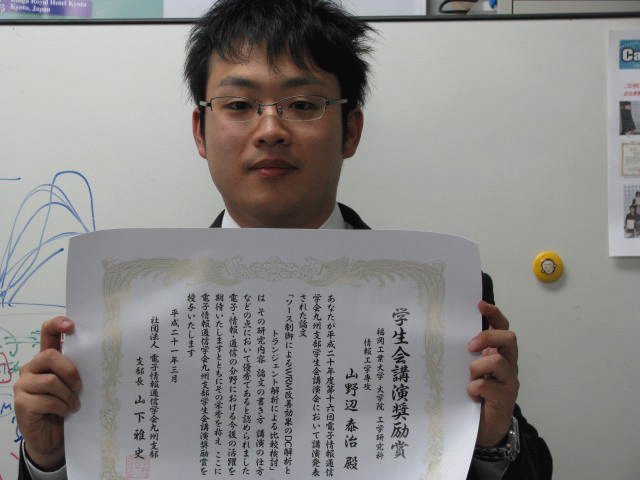 Royal Hotel Kyoto
Kyoto, Japan
学生会講演奨励賞
福岡工業大学 大学院 工学研究科
情報工学専攻
山野辺 泰治 殿
あなたが平成二十年度第十六回電子情報通信
学会九州支部学生会講演会において講演発表
された論文
「ソース制御によるWRM改善効果のDC解析と
トランジェント解析による比較検討」
は その研究内容 論文の書き方 講演の仕方
などの点において優秀であると認められました
電子・情報・通信の分野における今後の活躍を
期待いたしますとともにその栄誉を称え ここに
電子情報通信学会九州支部学生会講演奨励賞を
授与いたします
平成二十一年三月
社団法人 電子情報通信学会九州支部
支部長 山下 雅史
Ca